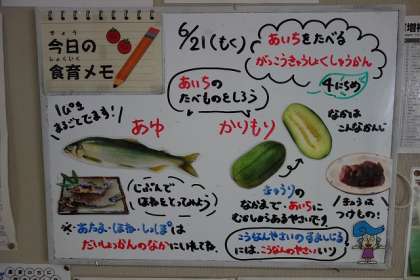 きょう
今日の
しょくいく
食育メモ
6/21(もく)
あいちをたべる
がっこうきゅうしょくしゅうかん
4にちめ
あいちの
たべものをしろう
1ぴき
まるごとでます!
あゆ
かりもり
なかは
こんなかんじ
じぶんで
ほねをとってみよう
きゅうりの
なかまで・あいちに
むかしからあるやさいです。
きょうは
つけもの!
※・あたま・ほね・しっぽは
だいしょっかんのなかにいれてね。